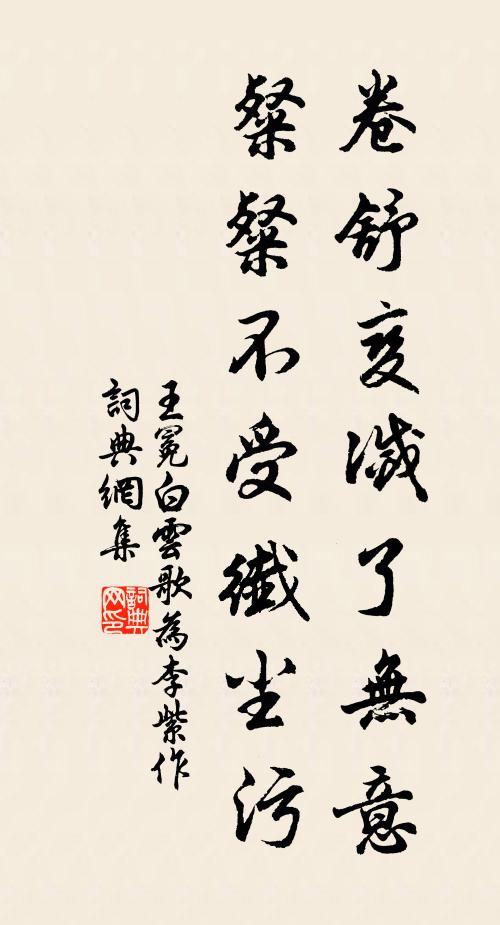 卷舒变滅了無意
粲粲不受纖尘污
王冕白雲歌為李紫作
詞典網集
詞典
网印